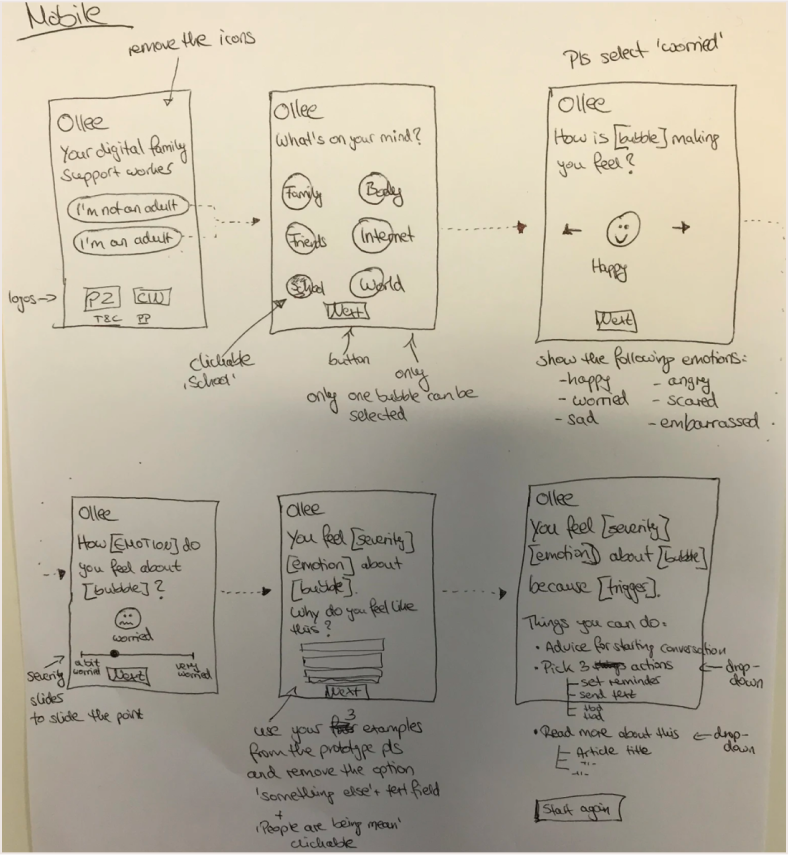 Mobile
remove the icons
Ollee
Your digital family
support worker
I'm not an adult
I'm an adult
logos →
PZ CW
T&C PP
Ollee
What's on your mind?
Family Body
Friends Internet
School World
Next
clickable
'School'
button
only
only one bubble can be
selected
Pls select 'worried'
Ollee
How is [bubble] making
you feel?
Happy
Next
show the following emotions:
- happy - angry
- worried - scared
- sad - embarrassed
Ollee
How [EMOTION] do
you feel about
[bubble]?
worried
a bit
worried
very
worried
Next
severity
slides
to slide the point
Ollee
You feel [severity]
[emotion] about
[bubble].
Why do you feel like
this?
Next
use your 3 examples
from the prototype pls
and remove the option
'something else' + text field
+
'People are being mean'
clickable
Ollee
You feel [severity]
[emotion] about [bubble]
because [trigger].
Things you can do:
• Advice for starting conversation
• Pick 3 actions ← drop-
down
set reminder
send text
tbd
tbd
• Read more about this ← drop-
down
Article title
-"-
-"-
Start again